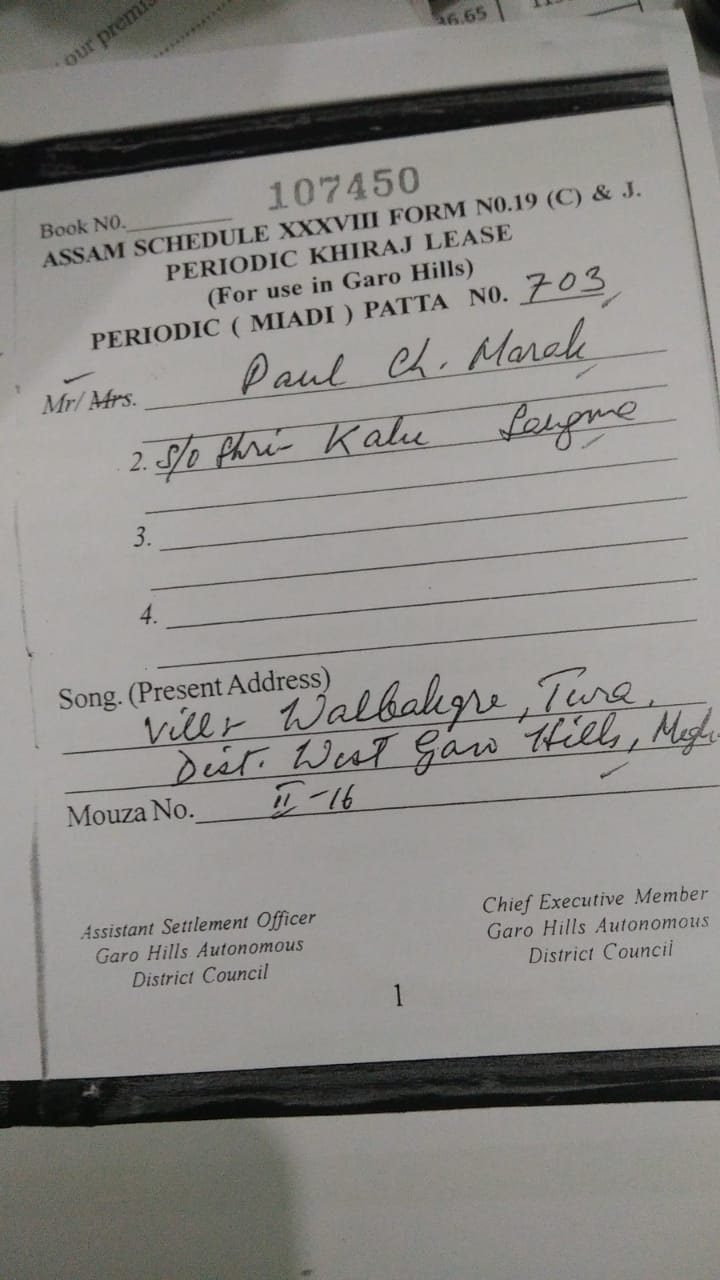 our premis
36.65
107450
Book N0.
ASSAM SCHEDULE XXXVIII FORM N0.19 (C) & J.
PERIODIC KHIRAJ LEASE
(For use in Garo Hills)
PERIODIC ( MIADI ) PATTA N0. 703
Mr/ Mrs. Paul Ch. Marak
2. S/o Shri Kalu Sangma
3.
4.
Song. (Present Address)
Vill:- Walbakgre, Tura,
Dist. West Garo Hills, Megh
Mouza No. II-16
Assistant Settlement Officer
Garo Hills Autonomous
District Council
Chief Executive Member
Garo Hills Autonomous
District Council
1